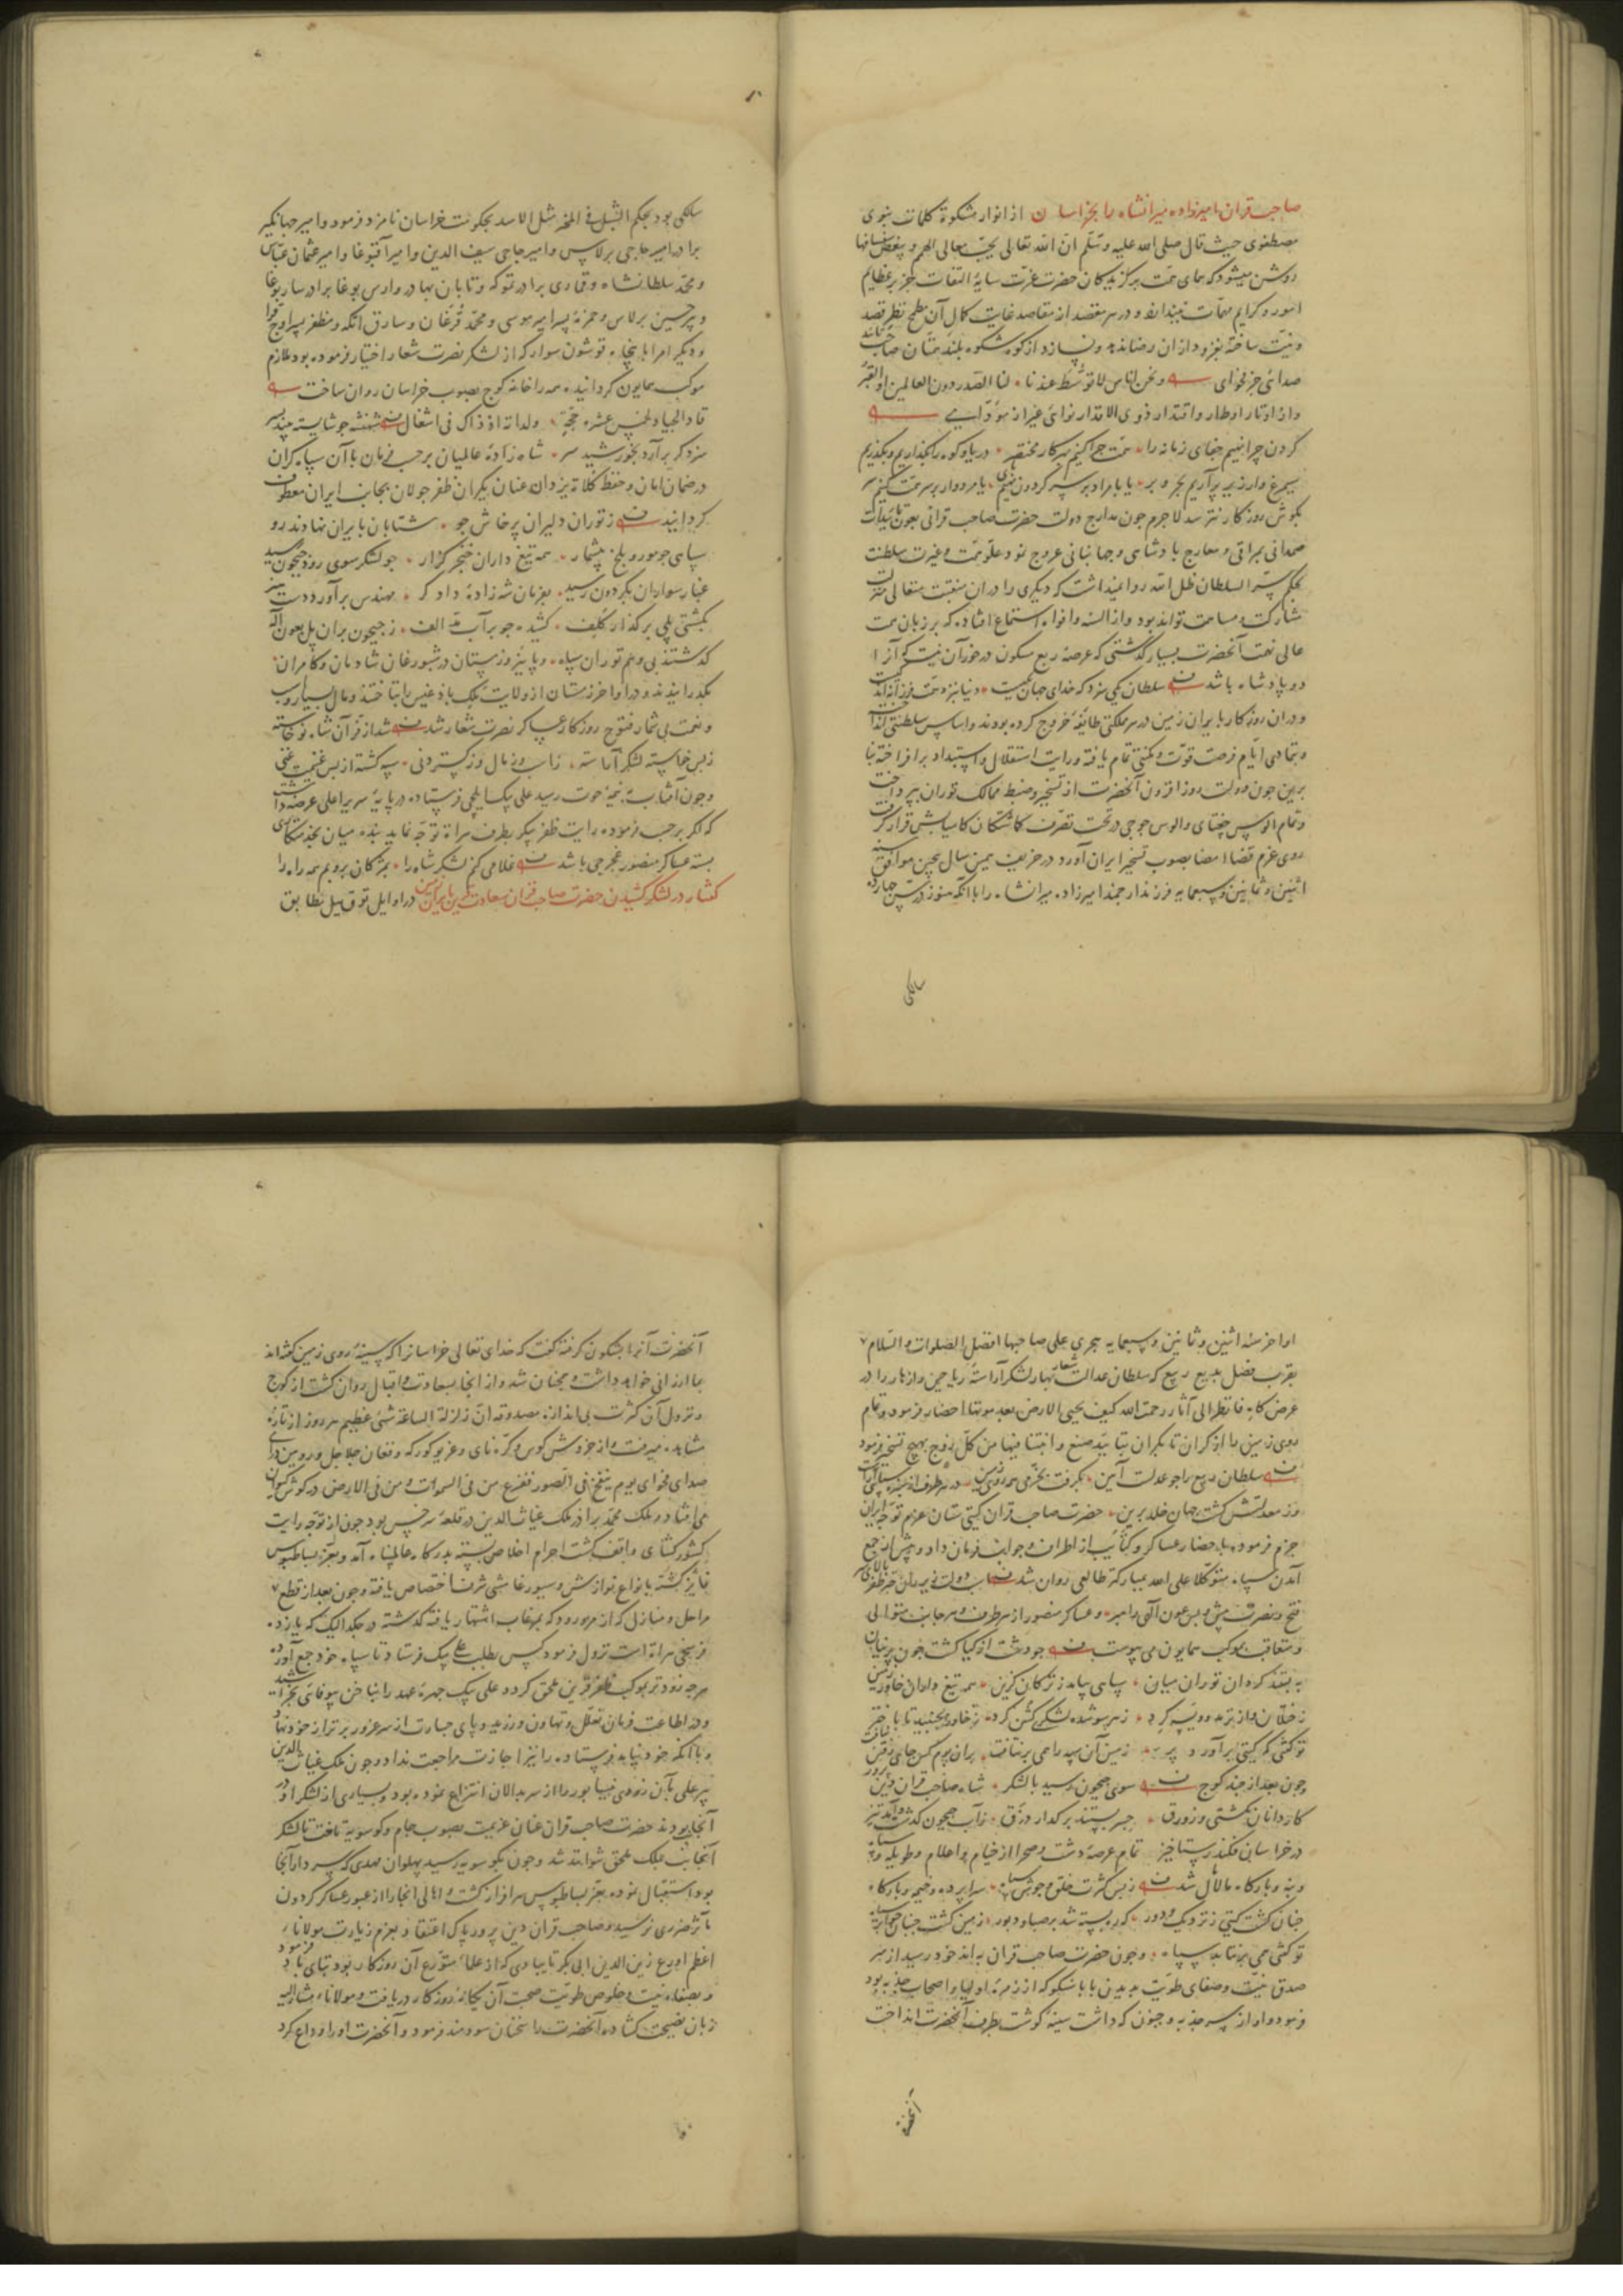 صاحب قران امیرزاده میرانشاه را بخراسان از انوار مشکوة کلمات نبوی
مصطفوی حیث قال صلی الله علیه وسلم ان الله تعالی یحب معالی الهمم و یبغض سفسافها
روشن میشود که همای همت برگزیدگان حضرت عزت سایهٔ التفات جز بر عظایم
امور و کرایم مهمات نیندازد و در هر مقصد از مقاصد غایت کمال آن مطمح نظر قصد
و نیت ساخته بفرود از آن رضا ندهد و باز از کوه شکوه بلند همتان صاحب
صدائی جز فحوای ونحن اناس لا توسط عندنا لنا الصدر دون العالمین او القبر
واز اوتار اوطار واقتدار ذوی الاقدار نوائی غیر از مودّای
گردن چرا نهیم جفای زمانه را همت چرا کنیم بهر کار مختصر دریا و کوه را بگذاریم و بگذریم
سیمرغ وار زیر پر آریم بحر و بر یا با مراد بر سر گردون نهیم پای یا مردوار بر سر همت کنیم سر
بگوش روزکار نرسد لاجرم چون مدارج دولت حضرت صاحب قرانی بعون تائیدات
صمدانی بمراقی و معارج پادشاهی و جهانبانی عروج نمود علو همت و غیرت سلطنت
بحکم سر السلطان ظل الله روا نمیداشت که دیگری را در آن منقبت متعالی منزلت
مشارکت و مساهمت تواند بود و از السنه و افواه استماع افتاده که بر زبان همت
عالی نهمت آنحضرت بسیار گذشتی که عرصهٔ ربع مسکون در خور آن نیست که آنرا
دو پادشاه باشد سلطان یکی سزد که خدای جهان یکیست
و در آن روزکار با ایران زمین در هر مملکتی طایفهٔ خروج کرده بودند و اساس سلطنتی
و بتمادی ایام فرصت قوت و مکنتی تمام یافته و رایت استقلال و استبداد برافراخته بنا
برین چون دولت روزافزون آنحضرت از تسخیر و ضبط ممالک توران بپرداخت
و تمام الوس جغتای و الوس جوجی در تحت تصرف گماشتگان کامیابش قرار گرفت
روی عزم قضا امضا بصوب تسخیر ایران آورد و در خریف همین سال بیچین موافق سنه
اثنین وثمانین وسبعمایه فرزند ارجمند امیرزاده میرانشاه را با آنکه هنوز در سن چهارده
سالگی
سالگی بود بحکم الشبل فی المخبر مثل الاسد بحکومت خراسان نامزد فرمود و امیر جهانگیر
برادر امیر حاجی برلاس و امیر حاجی سیف الدین و امیر آقبوغا و امیر عثمان عباس
و محمد سلطانشاه و قماری برادر تموکه و تابان بهادر وارس بوغا برادر ساربوغا
و پیر حسین برلاس و حمزه پسر امیر موسی و محمد قزغان و سارق اتکه و مظفر پسر اوج قرا
و دیگر امرا با پنجاه قوشون سوار که از لشکر نصرت شعار اختیار فرموده بود ملازم
موکب همایون گردانیده همه را خانه کوچ بصوب خراسان روان ساخت
قاد الجیاد لخمس عشره حجّة ولداته اذ ذاک فی اشغال شهنشه چو شایسته بیند پسر
سزد گر برآرد بخورشید سر شاه زادهٔ عالمیان برحسب فرمان با آن سپاه گران
در ضمان امان و حفظ کلاءة یزدان عنان یکران ظفر جولان بجانب ایران معطوف
گردانید ز توران دلیران پرخاش جو شتابان بایران نهادند رو
سپاهی چو مور و ملخ بیشمار همه تیغ داران خنجر گزار چو لشکر سوی رود جیحون رسید
غبار سواران بگردون رسید بفرمان شه زادهٔ دادگر مهندس برآورد دست هنر
بکشتی پلی بر گذار کلف کشیده چو بر آب مد الف ز جیحون بر آن پل بعون اله
گذشتند بی وهم توران سپاه و پاییز و زمستان در شبورغان شادمان و کامران
بگذرانیدند و در اواخر زمستان از ولایت ملک بادغیس را بتاختند و مال بسیار و اسب
و نعمت بی شمار فتوح روزکار عساکر نصرت شعار شد شد از قرآن شاه نوخاسته
ز بس خواسته لشکر آراسته ز اسب و ز مال و ز گستردنی سپه گشته از بس غنیمت غنی
و چون آفتاب بنقطه حوت رسید علی بیک ایلچی فرستاده در پایهٔ سریر اعلی عرضه داشت
که اگر برحسب فرموده رایت ظفر پیکر بطرف هراة توجه نماید بنده میان بخدمتکاری
بسته عساکر منصور غجرجی باشد غلامی کنم لشکر شاه را بمژگان بروبم همه راه را
گفتار در لشکر کشیدن حضرت صاحب قران سعادت قرین بایران زمین در اوایل توقیل مطابق
اواخر سنه اثنین وثمانین وسبعمایه هجری علی صاحبها افضل الصلوات والسلام
بقرب فصل بدیع ربیع که سلطان عدالت شعار بهار لشکر آراستهٔ ریاحین و ازهار را در
عرض گاه فانظر الی آثار رحمت الله کیف یحیی الارض بعد موتها احضار فرمود و تمام
روی زمین را از کران تا بکران بتایید صنع وانبتنا فیها من کل زوج بهیج تسخیر فرمود
سلطان ربیع را چو عدلت آیین بگرفت بخرمی همه روی زمین
وز معدلتش گشت جهان خلد برین حضرت صاحب قران گیتی ستان عزم توجه ایران
جزم فرموده باحضار عساکر و کتائب از اطراف و جوانب فرمان داد و پیش از جمع
آمدن سپاه متوکلا علی الله بمبارکتر طالعی روان شد
فتح و نصرت پیش و پس عون الهی راهبر و عساکر منصور از هر طرف و هر جانب متوالی
و متعاقب بموکب همایون می پیوست چو دشت از گیا گشت چون پرنیان
ببستند گردان توران میان سپاهی بیامد ز ترکان گزین همه تیغ داران خاور زمین
ز ختلان و از ترمد و ویسه گرد ز هر سو شده لشکری گشن گرد ز خاور بجنبید تا باختر
تو گفتی که گیتی برآورد پر زمین آن سپه را همی برنتافت بر آن بوم کس جای رفتن نیافت
و چون بعد از چند کوچ سوی جیحون رسید با لشکر شاه صاحب قران دین پرور
کاردانان بکشتی و زورق جسر بستند بر گدار دزق ز آب جیحون گذشت و آمد تیز
در خراسان فکند رستاخیز تمام عرصهٔ دشت و صحرا از خیام و اعلام و طویله
و بنه و بارگاه مالامال شد ز بس کثرت خلق و جوش سپاه سراپرده و خیمه و بارگاه
چنان گشت گیتی ز نزدیک و دور که ره بسته شد بر صبا و دبور زمین گشت جنبان چو ابر سیاه
تو گفتی همی برنتابد سپاه و چون حضرت صاحب قران به اندخود رسید از سر
صدق نیت و صفای طویت بدیدن بابا سنگو که از زمرهٔ اولیا و اصحاب جذبه بود
فرمود و او از سر جذبه و جنون که داشت سینه گوشت بطرف آنحضرت انداخت
آنحضرت
آنحضرت آنرا بشکون گرفته گفت که خدای تعالی خراسانرا که سینهٔ روی زمین گفته اند
بما ارزانی خواهد داشت و همچنان شد و از آنجا بسعادت و اقبال روان گشت از کوچ
و نزول آن کثرت بی اندازه مصدوقه ان زلزلة الساعة شئ عظیم هر روز از تازه
مشاهده میرفت و از خروش کوس و کره نای و غریو کورکه و فغان جلاجل و رویین درای
صدای فحوای یوم ینفخ فی الصور ففزع من فی السموات ومن فی الارض در گوش کیوان
می افتاد و ملک محمد برادر ملک غیاث الدین در قلعهٔ سرخس بود چون از توجه رایت
کشورگشای واقف گشت احرام اخلاص بسته بدرگاه عالمپناه آمد و بعز بساطبوس
فایز گشته بانواع نوازش و سیورغامشی شرف اختصاص یافته و چون بعد از قطع
مراحل و منازل که از مرورود که بمرغاب اشتهار یافته گذشته در جکدالیک که یازده
فرسخی هراة است نزول فرمود کس بطلب علی بیک فرستاد تا سپاه خود جمع آورد
هرچه زودتر بموکب ظفر قرین ملحق گردد علی بیک چهرهٔ عهد را بناخن بیوفائی بخراشید
و در اطاعت فرمان تعلل و تهاون ورزید و پای جسارت از سر غرور برتر از خود نهاد
و با آنکه خود نیامد فرستاده را نیز اجازت مراجعت نداد و چون ملک غیاث الدین
پیر علی بآن زودی نیسابور را از سربدالان انتزاع نموده بود و بسیاری از لشکر او در
آنجا بودند حضرت صاحب قران عنان عزیمت بصوب جام و کوسویه تافت تا لشکر
آنجانب بملک ملحق نتوانند شد و چون بکوسویه رسید پهلوان مهدی که سردار آنجا
بود استقبال نموده بعز بساطبوس سرافراز گشت و اهالی آنجا را از عبور عساکر گردون
مآثر ضرری نرسید و صاحب قران دین پرور پاک اعتقاد بعزم زیارت مولانای
اعظم اورع زین الدین ابی بکر تایبادی که از علمای متورع آن روزکار بود بتایباد
و بصفاء نیت و خلوص طویت صحبت آن یگانهٔ روزکار دریافت و مولاناء مشار الیه
زبان نصیحت گشاده آنحضرت را سخنان سودمند فرمود و آنحضرت او را وداع کرد